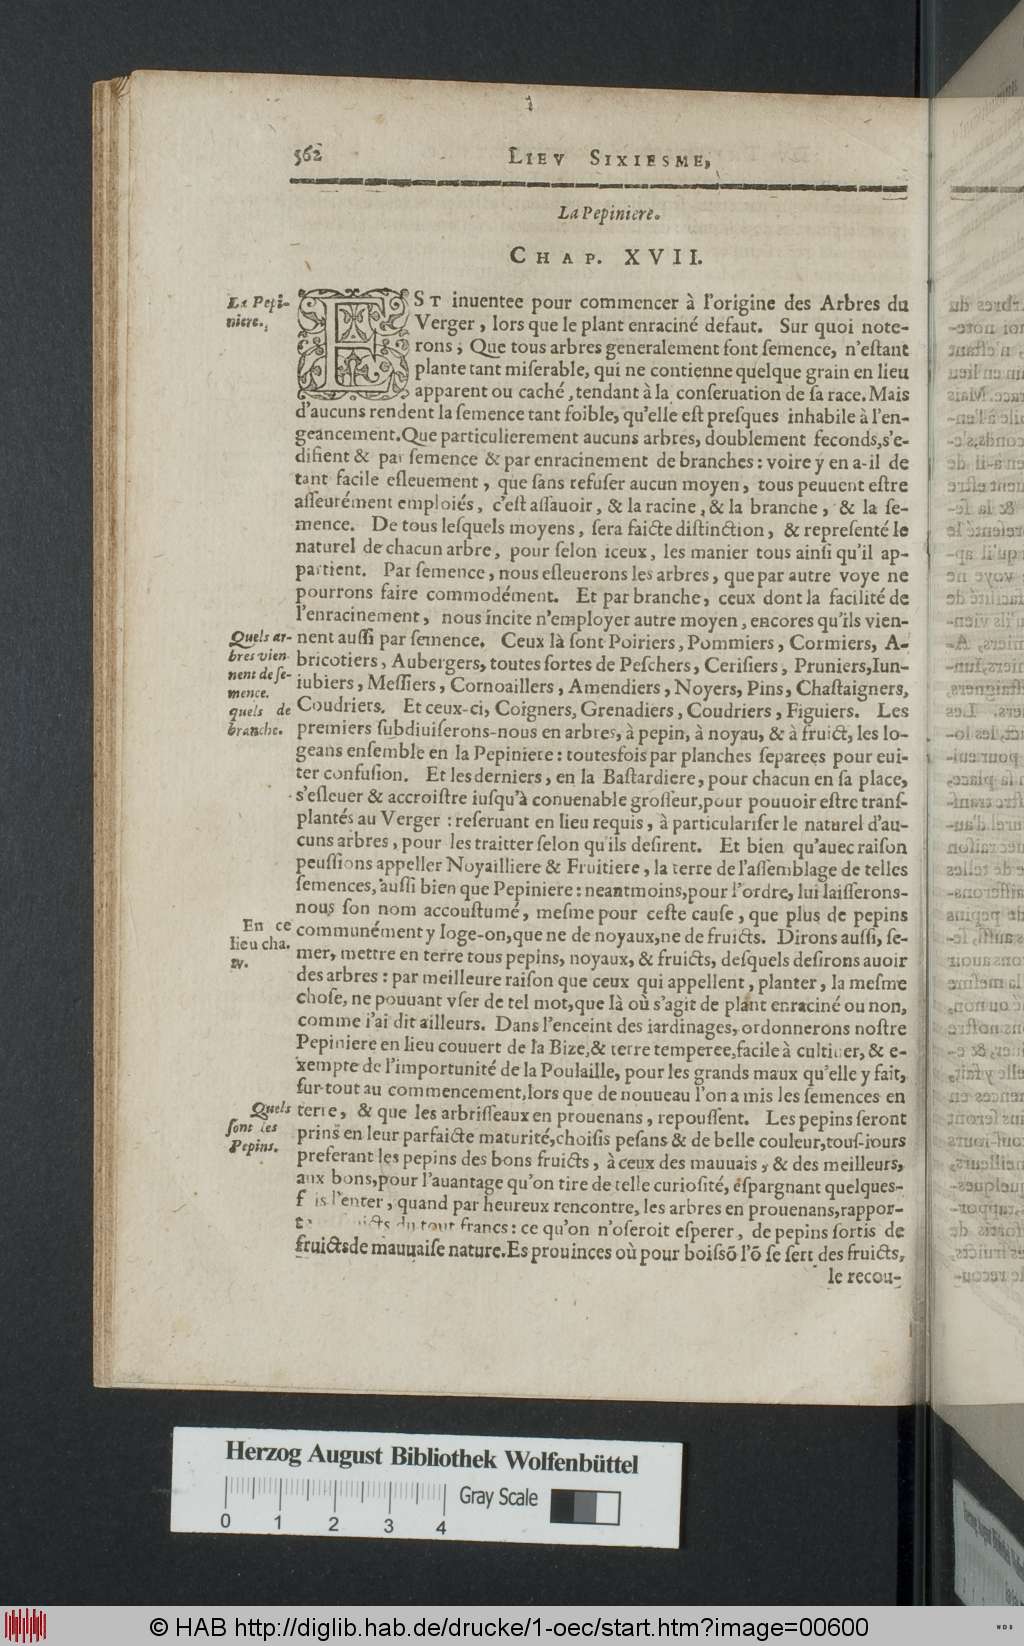 562
LIEV SIXIESME,
La Pepiniere.
CHAP. XVII.
La Pepi-
niere.
EST inuentee pour commencer à l'origine des Arbres du
Verger, lors que le plant enraciné defaut. Sur quoi note-
rons, Que tous arbres generalement font semence, n'estant
plante tant miserable, qui ne contienne quelque grain en lieu
apparent ou caché, tendant à la conseruation de sa race. Mais
d'aucuns rendent la semence tant foible, qu'elle est presques inhabile à l'en-
geancement. Que particulierement aucuns arbres, doublement feconds, s'e-
difient & par semence & par enracinement de branches: voire y en a-il de
tant facile esleuement, que sans refuser aucun moyen, tous peuuent estre
asseurément emploiés, c'est assauoir, & la racine, & la branche, & la se-
mence. De tous lesquels moyens, sera faicte distinction, & representé le
naturel de chacun arbre, pour selon iceux, les manier tous ainsi qu'il ap-
partient. Par semence, nous esleuerons les arbres, que par autre voye ne
pourrons faire commodément. Et par branche, ceux dont la facilité de
l'enracinement, nous incite n'employer autre moyen, encores qu'ils vien-
Quels ar-
bres vien-
nent de se-
mence.
quels de
branche.
nent aussi par semence. Ceux là sont Poiriers, Pommiers, Cormiers, A-
bricotiers, Aubergers, toutes sortes de Peschers, Cerisiers, Pruniers, Iun-
iubiers, Messiers, Cornoaillers, Amendiers, Noyers, Pins, Chastaigners,
Coudriers. Et ceux-ci, Coigners, Grenadiers, Coudriers, Figuiers. Les
premiers subdiuiserons-nous en arbres, à pepin, à noyau, & à fruict, les lo-
geans ensemble en la Pepiniere: toutesfois par planches separees pour eui-
ter confusion. Et les derniers, en la Bastardiere, pour chacun en sa place,
s'esleuer & accroistre iusqu'à conuenable grosseur, pour pouuoir estre trans-
plantés au Verger: reseruant en lieu requis, à particulariser le naturel d'au-
cuns arbres, pour les traitter selon qu'ils desirent. Et bien qu'auec raison
peussions appeller Noyailliere & Fruitiere, la terre de l'assemblage de telles
semences, aussi bien que Pepiniere: neantmoins, pour l'ordre, lui laisserons-
nous son nom accoustumé, mesme pour ceste cause, que plus de pepins
En ce
lieu cha.
iv.
communément y loge-on, que ne de noyaux, ne de fruicts. Dirons aussi, se-
mer, mettre en terre tous pepins, noyaux, & fruicts, desquels desirons auoir
des arbres: par meilleure raison que ceux qui appellent, planter, la mesme
chose, ne pouuant vser de tel mot, que là où s'agit de plant enraciné ou non,
comme i'ai dit ailleurs. Dans l'enceint des iardinages, ordonnerons nostre
Pepiniere en lieu couuert de la Bize, & terre temperee, facile à cultiuer, & e-
xempte de l'importunité de la Poulaille, pour les grands maux qu'elle y fait,
sur-tout au commencement, lors que de nouueau l'on a mis les semences en
Quels
sont les
Pepins.
terre, & que les arbrisseaux en prouenans, repoussent. Les pepins seront
prins en leur parfaicte maturité, choisis pesans & de belle couleur, tous-iours
preferant les pepins des bons fruicts, à ceux des mauuais, & des meilleurs,
aux bons, pour l'auantage qu'on tire de telle curiosité, espargnant quelques-
f is l'enter, quand par heureux rencontre, les arbres en prouenans, rappor-
du tout francs: ce qu'on n'oseroit esperer, de pepins sortis de
fruicts de mauuaise nature. Es prouinces où pour boissō l'ō se sert des fruicts,
le recou-
Herzog August Bibliothek Wolfenbüttel
0 1 2 3 4
Gray Scale
© HAB http://diglib.hab.de/drucke/1-oec/start.htm?image=00600